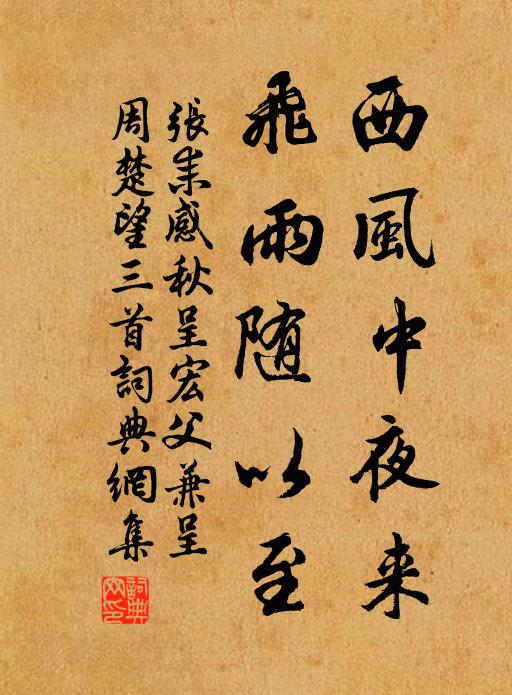 西風中夜来
飛雨随以至
張耒感秋呈宏父兼呈
周楚望三首詞典網集
詞典
网印